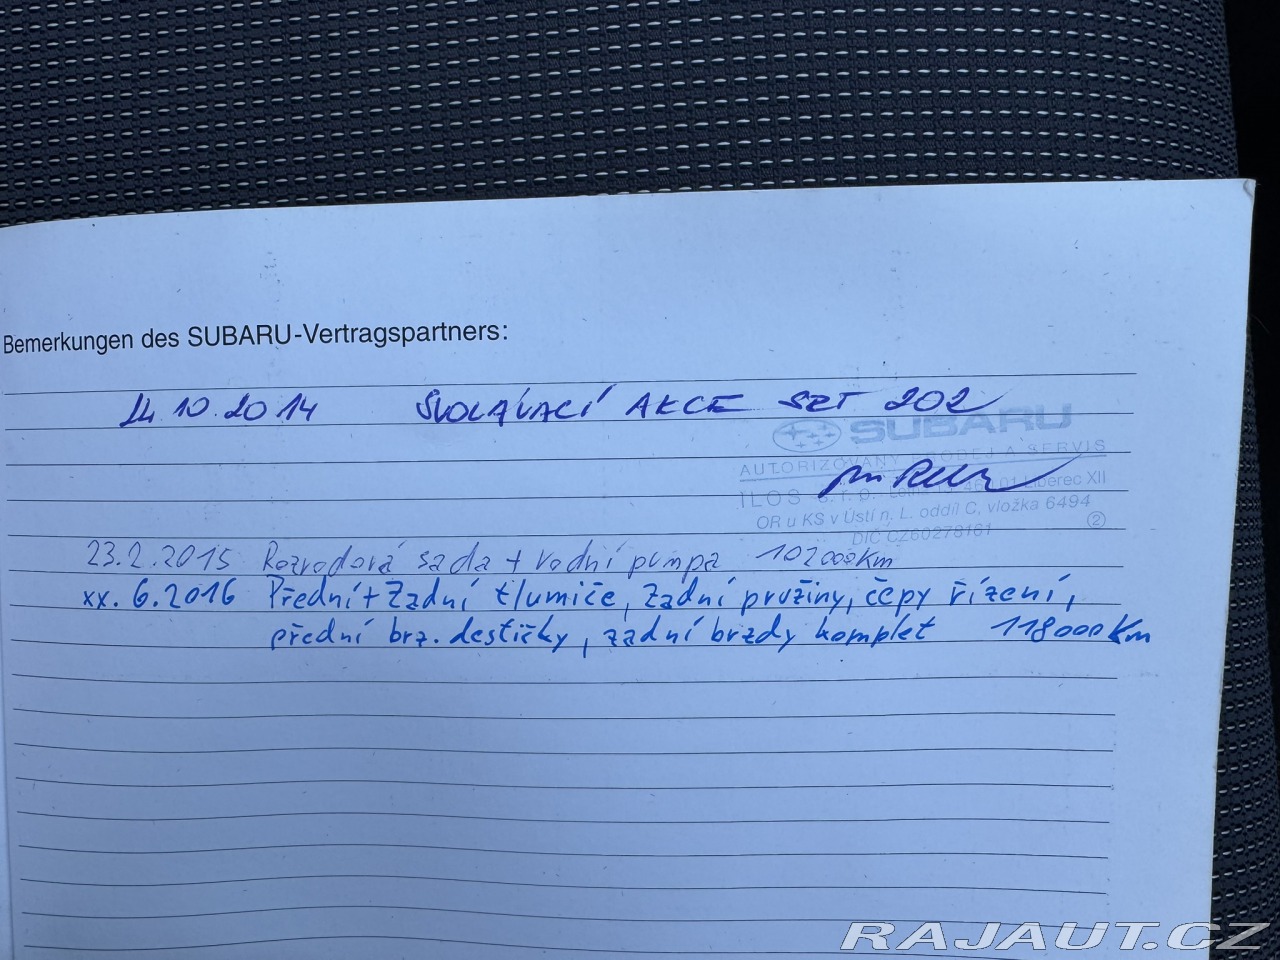 Bemerkungen des SUBARU-Vertragspartners:
14.10.2014 SVOLÁVACÍ AKCE SZT 202
SUBARU
AUTORIZOVANÝ PRODEJ A SERVIS
ILOS s.r.o. 01 Liberec XII
OR u KS v Ústí n. L. oddíl C, vložka 6494
DIČ CZ60278161 2
23.2.2015 Rozvodová sada + vodní pumpa 102000Km
xx. 6.2016 Přední + Zadní tlumiče, zadní pružiny, čepy řízení,
přední brz. destičky, zadní brzdy komplet 118000Km
RAJAUT.CZ